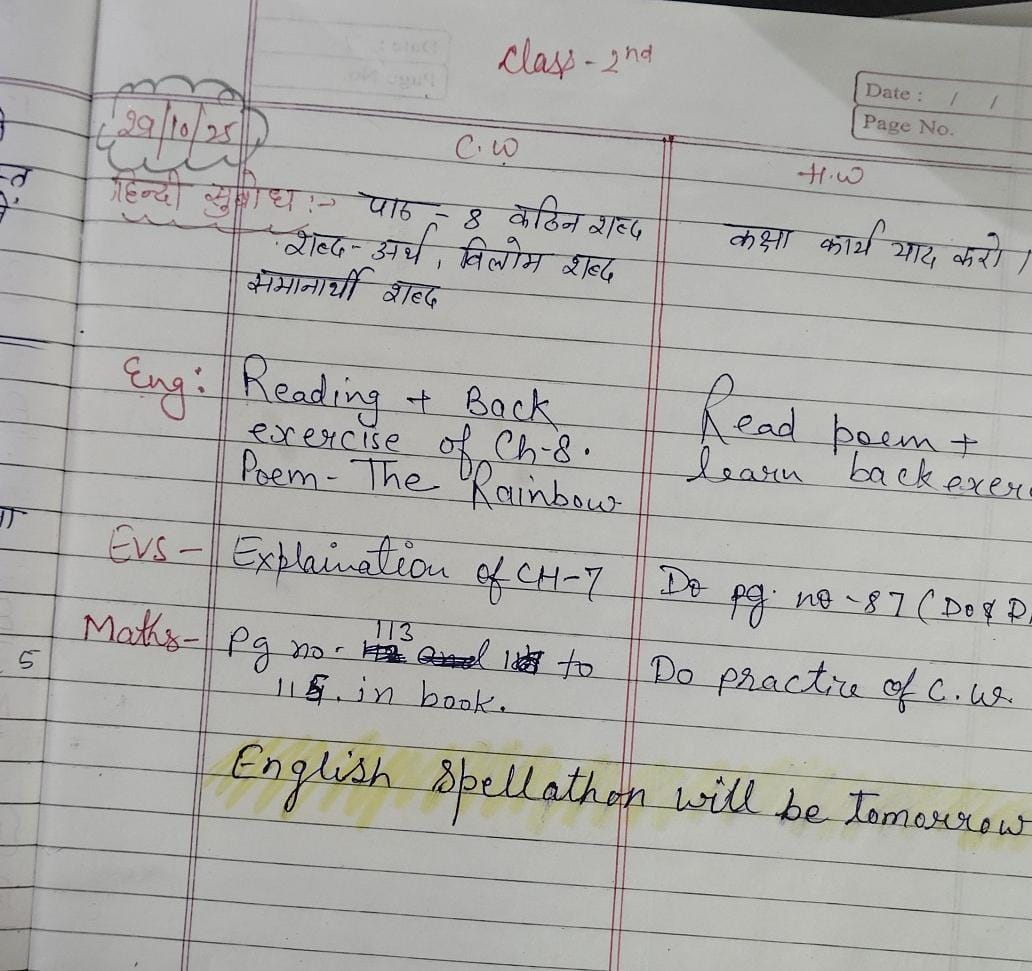 Class - 2nd
Date : / /
Page No.
29/10/25
C.W
H.W
हिन्दी सुबोध :-> पाठ - 8 कठिन शब्द
शब्द - अर्थ, विलोम शब्द
समानार्थी शब्द
कक्षा कार्य याद करो ।
Eng: Reading + Back
exercise of Ch-8.
Poem - The Rainbow
Read poem +
learn back exer
EVS - Explaination of CH-7
Do pg. no - 87 ( Do & D
Maths - Pg no. 113 to
115. in book.
Do practice of C.W.
English Spellathon will be tomorrow
5